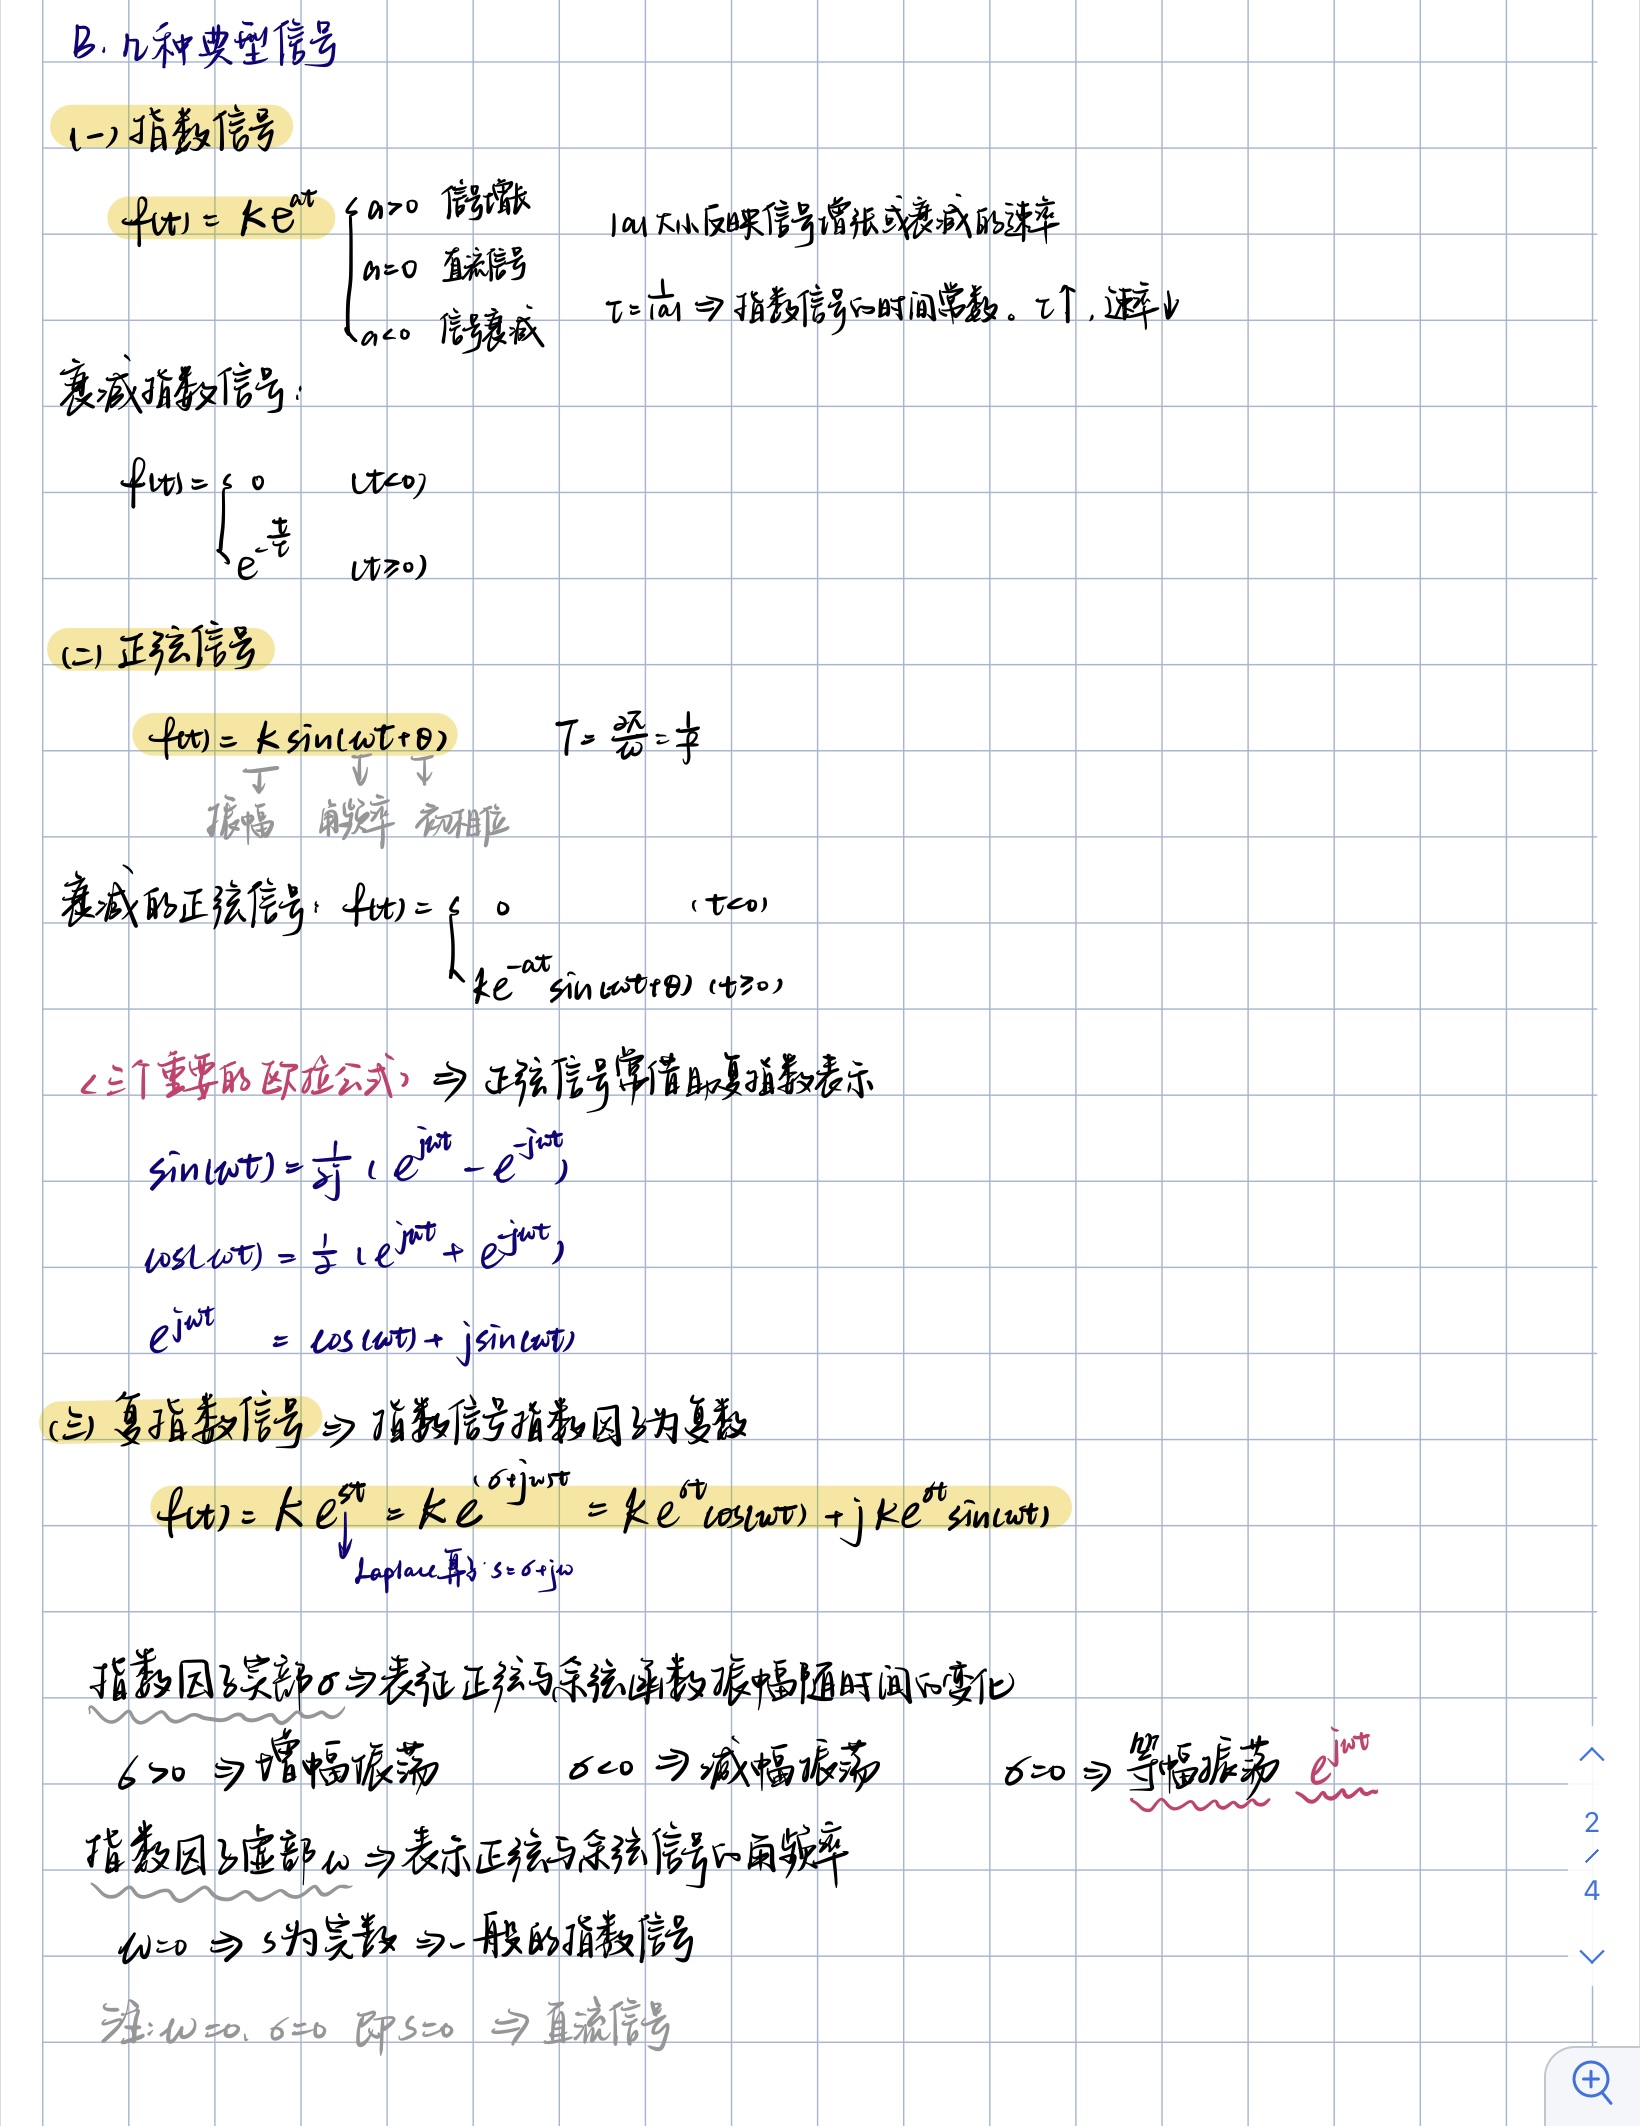 B. 几种典型信号
(一) 指数信号
f(t) = K e^{at} { a>0 信号增长
a=0 直流信号
a<0 信号衰减
|a| 大小反映信号增张或衰减的速率
τ = 1/|a| ⇒ 指数信号的时间常数。τ↑, 速率↓
衰减指数信号:
f(t) = { 0 (t<0)
e^{-t/τ} (t≥0)
(二) 正弦信号
f(t) = K sin(ωt+θ) T = 2π/ω = 1/f
振幅 角频率 初相位
衰减的正弦信号: f(t) = { 0 (t<0)
Ke^{-at} sin(ωt+θ) (t≥0)
<三个重要的欧拉公式> ⇒ 正弦信号常借助复指数表示
sin(ωt) = 1/2j (e^{jωt} - e^{-jωt})
cos(ωt) = 1/2 (e^{jωt} + e^{-jωt})
e^{jωt} = cos(ωt) + jsin(ωt)
(三) 复指数信号 ⇒ 指数信号指数因子为复数
f(t) = K e^{st} = K e^{(σ+jω)t} = K e^{σt} cos(ωt) + j K e^{σt} sin(ωt)
Laplace 算子: s=σ+jω
指数因子实部σ ⇒ 表征正弦与余弦函数振幅随时间的变化
σ>0 ⇒ 增幅振荡 σ<0 ⇒ 减幅振荡 σ=0 ⇒ 等幅振荡 e^{jωt}
指数因子虚部ω ⇒ 表示正弦与余弦信号的角频率
ω=0 ⇒ s为实数 ⇒ 一般的指数信号
注: ω=0, σ=0 即 s=0 ⇒ 直流信号
2
/
4